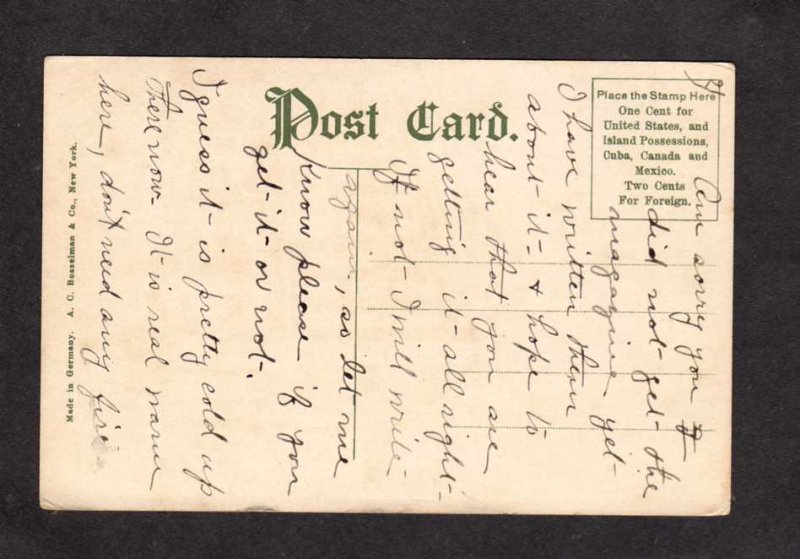 Post Card.
Place the Stamp Here
One Cent for
United States, and
Island Possessions,
Cuba, Canada and
Mexico.
Two Cents
For Foreign.
Made in Germany. A. C. Bosselman & Co., New York.
Am sorry you
did not get the
magazine yet
I have written them
about it & hope to
hear that you are
getting it all right.
If not I will write
again, so let me
know please if you
get it or not.
I guess it is pretty cold up
there now. It is real warm
here, don't need any fire